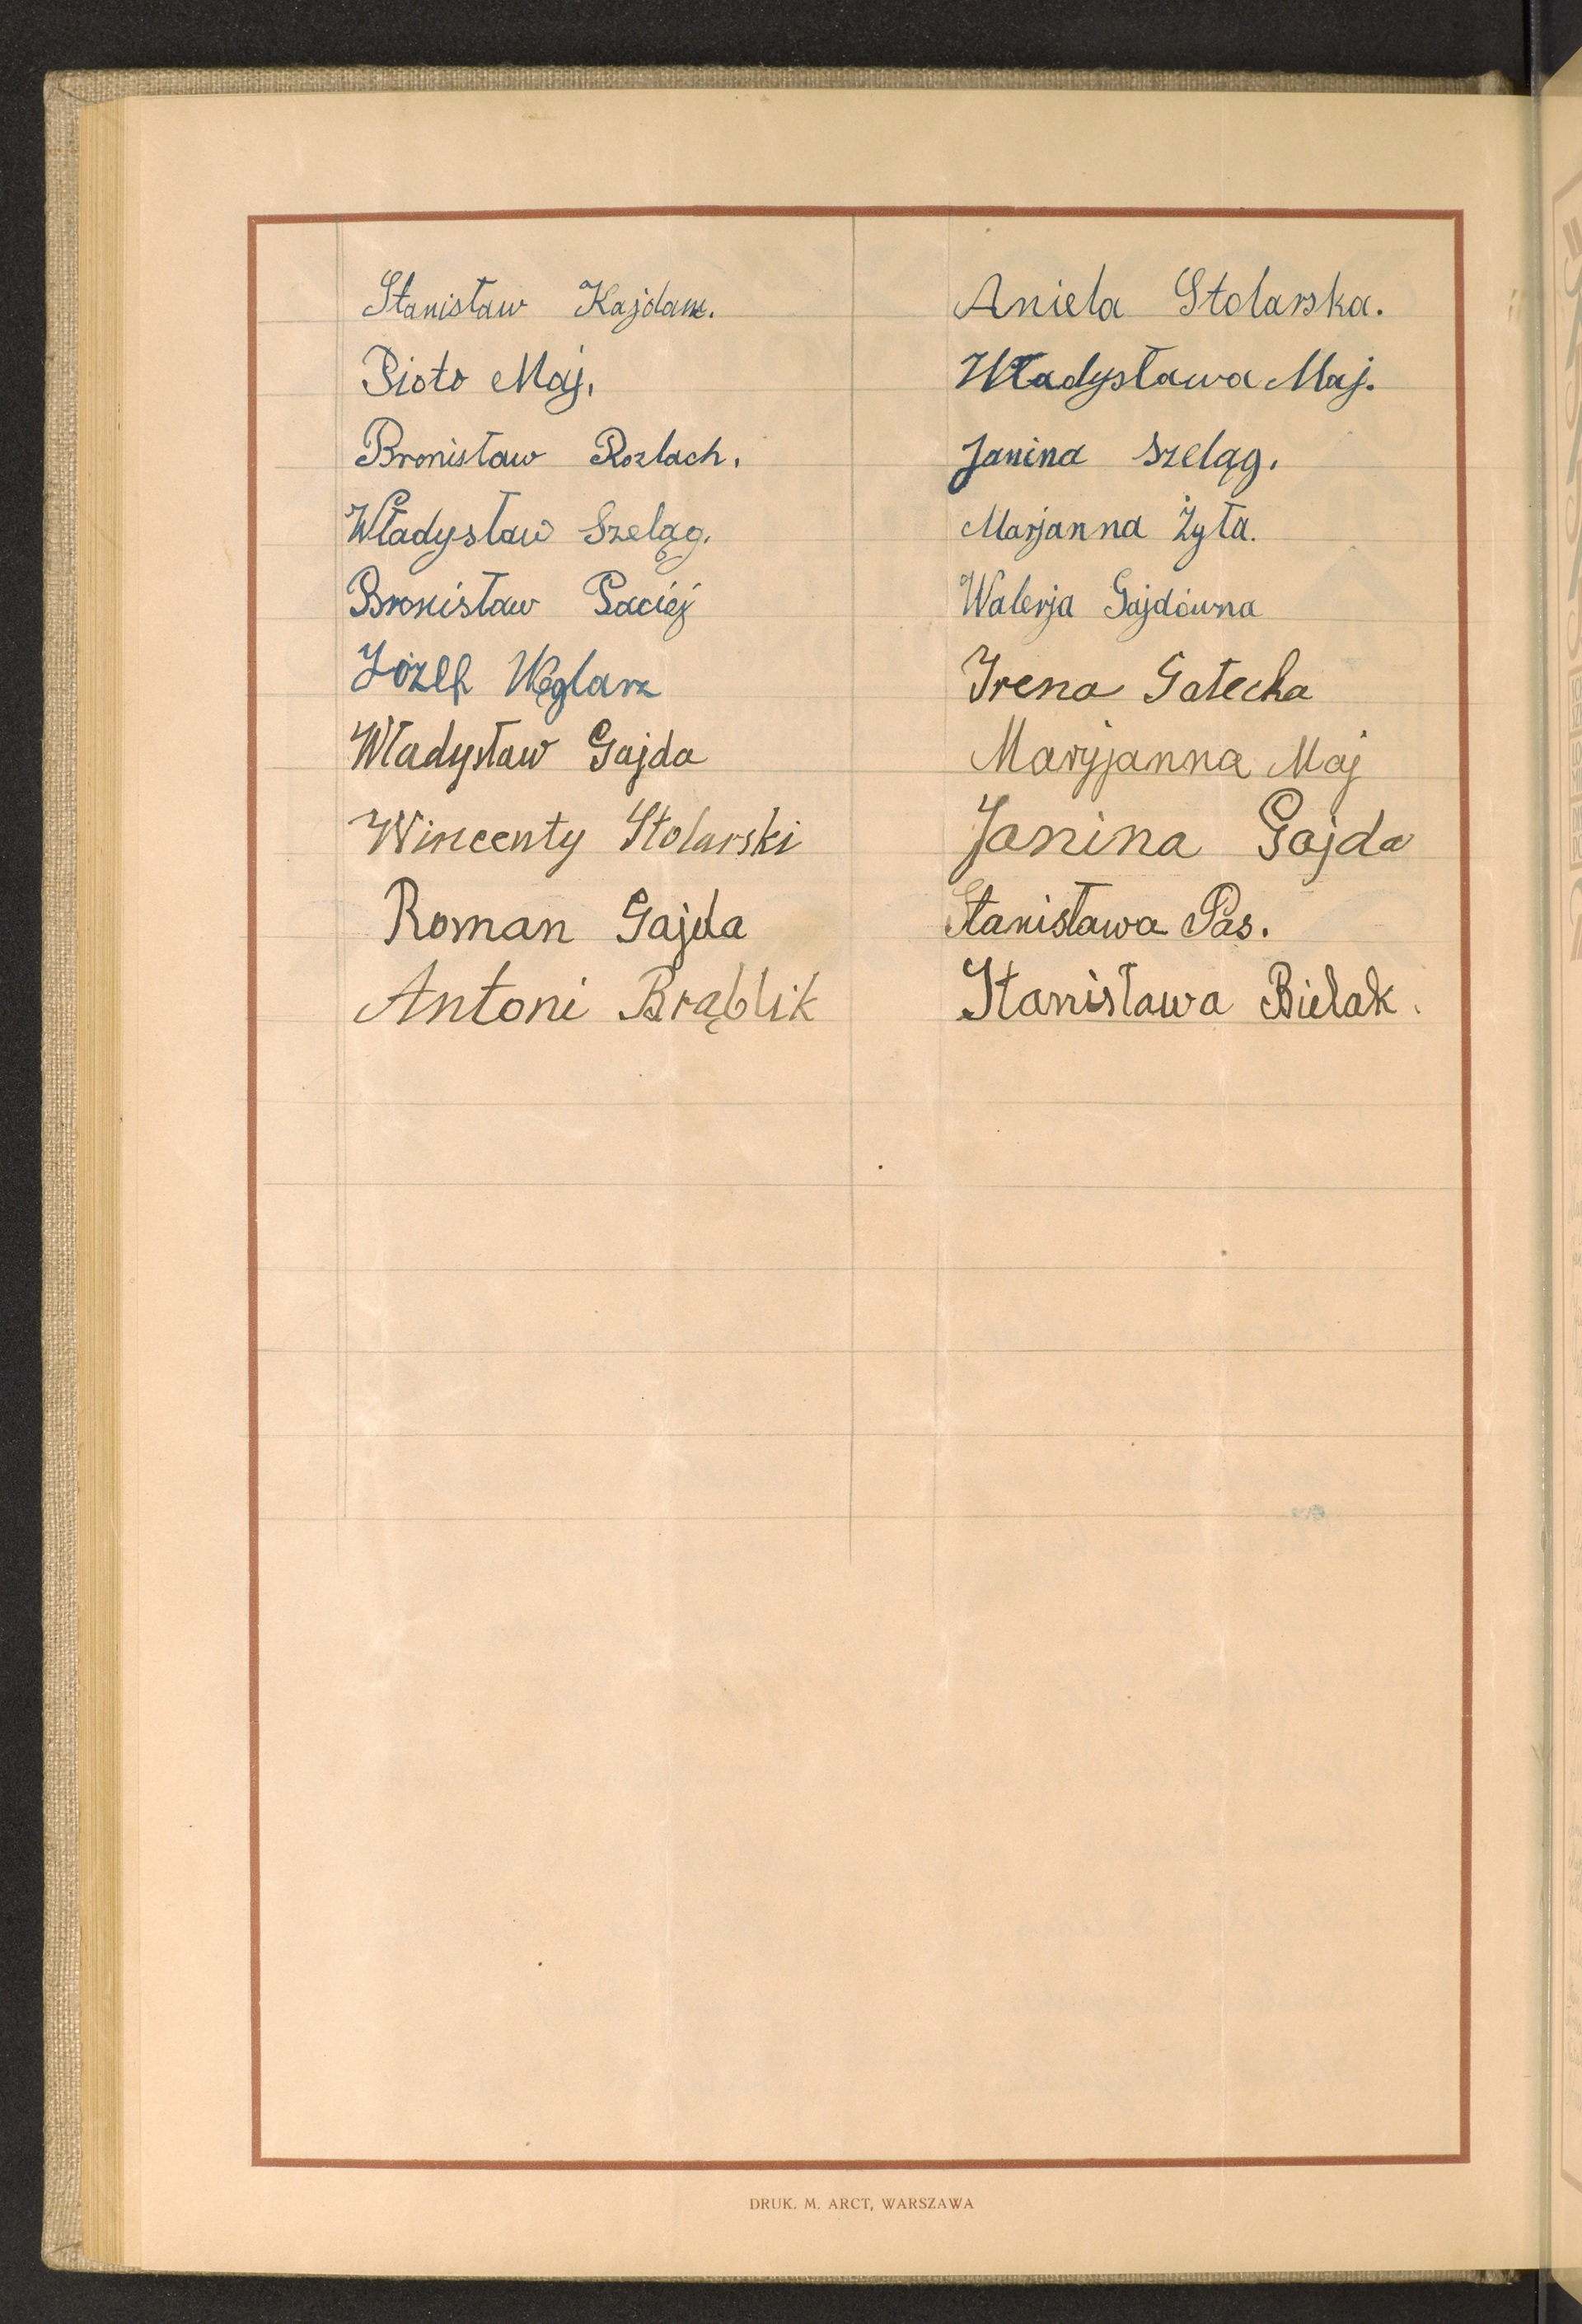 Stanisław Kajdam.
Piotr Maj.
Bronisław Rozlach.
Władysław Szeląg.
Bronisław Paciej
Józef Węglarz
Władysław Gajda
Wincenty Stolarski
Roman Gajda
Antoni Brąblik
Aniela Stolarska.
Władysława Maj.
Janina Szeląg.
Marjanna Żyła.
Walerja Gajdówna
Irena Gałecka
Maryjanna Maj
Janina Gajda
Stanisława Pas.
Stanisława Bielak.
DRUK. M. ARCT, WARSZAWA